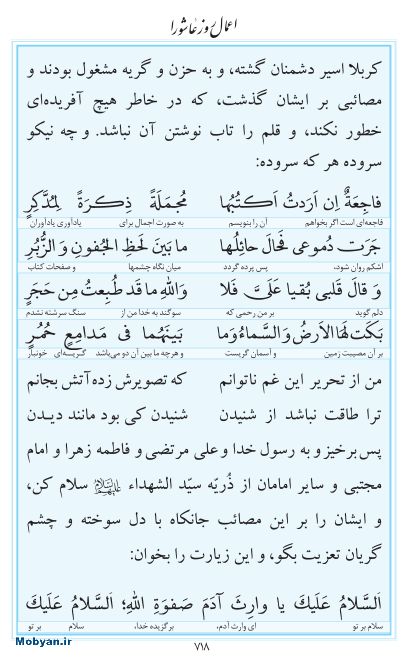 اعمال روز عاشورا
کربلا اسیر دشمنان گشته، و به حزن و گریه مشغول بودند و
مصائبی بر ایشان گذشت، که در خاطر هیچ آفریده‌ای
خطور نکند، و قلم را تاب نوشتن آن نباشد. و چه نیکو
سروده هر که سروده:
فاجِعَةٌ اِن اَرَدتُ اَکتُبُها مُجمَلَةً ذِکرَةً لِمُدَّکِرٍ
فاجعه‌ای است اگر بخواهم آن را بنویسم به صورت اجمال برای یادآوری یادآوران
جَرَت دُموعی فَحالَ حائِلُها ما بَینَ لَحظِ الجُفونِ وَ الزُّبُرِ
اشکم روان شود، پس پرده گردد میان نگاه چشمها و صفحات کتاب
وَ قالَ قَلبی بُقیا عَلَیَّ فَلا وَاللهِ ما قَد طُبِعتُ مِن حَجَرٍ
دلم گوید بر من رحمی که سوگند به خدا من از سنگ سرشته نشدم
بَکَت لَهَا الاَرضُ وَالسَّماءُ وَما بَینَهُما فی مَدامِعٍ حُمُرٍ
بر آن مصیبت زمین و آسمان گریست و هرچه ما بین آن دو می‌باشد گریـــه‌ای خونبار
من از تحریر این غم ناتوانم که تصویرش زده آتش بجانم
ترا طاقت نباشد از شنیدن شنیدن کی بود مانند دیـدن
پس برخیز و به رسول خدا و علی مرتضی و فاطمه زهرا و امام
مجتبی و سایر امامان از ذُریّه سیّد الشهداء علیهم‌السلام سلام کن،
و ایشان را بر این مصائب جانکاه با دل سوخته و چشم
گریان تعزیت بگو، و این زیارت را بخوان:
اَلسَّلامُ عَلَیكَ یا وارِثَ آدَمَ صَفوَةِ اللهِ؛ اَلسَّلامُ عَلَیكَ
سلام بر تو ای وارث آدم، برگزیده خدا، سلام بر تو
Mobyan.ir
۷۱۸